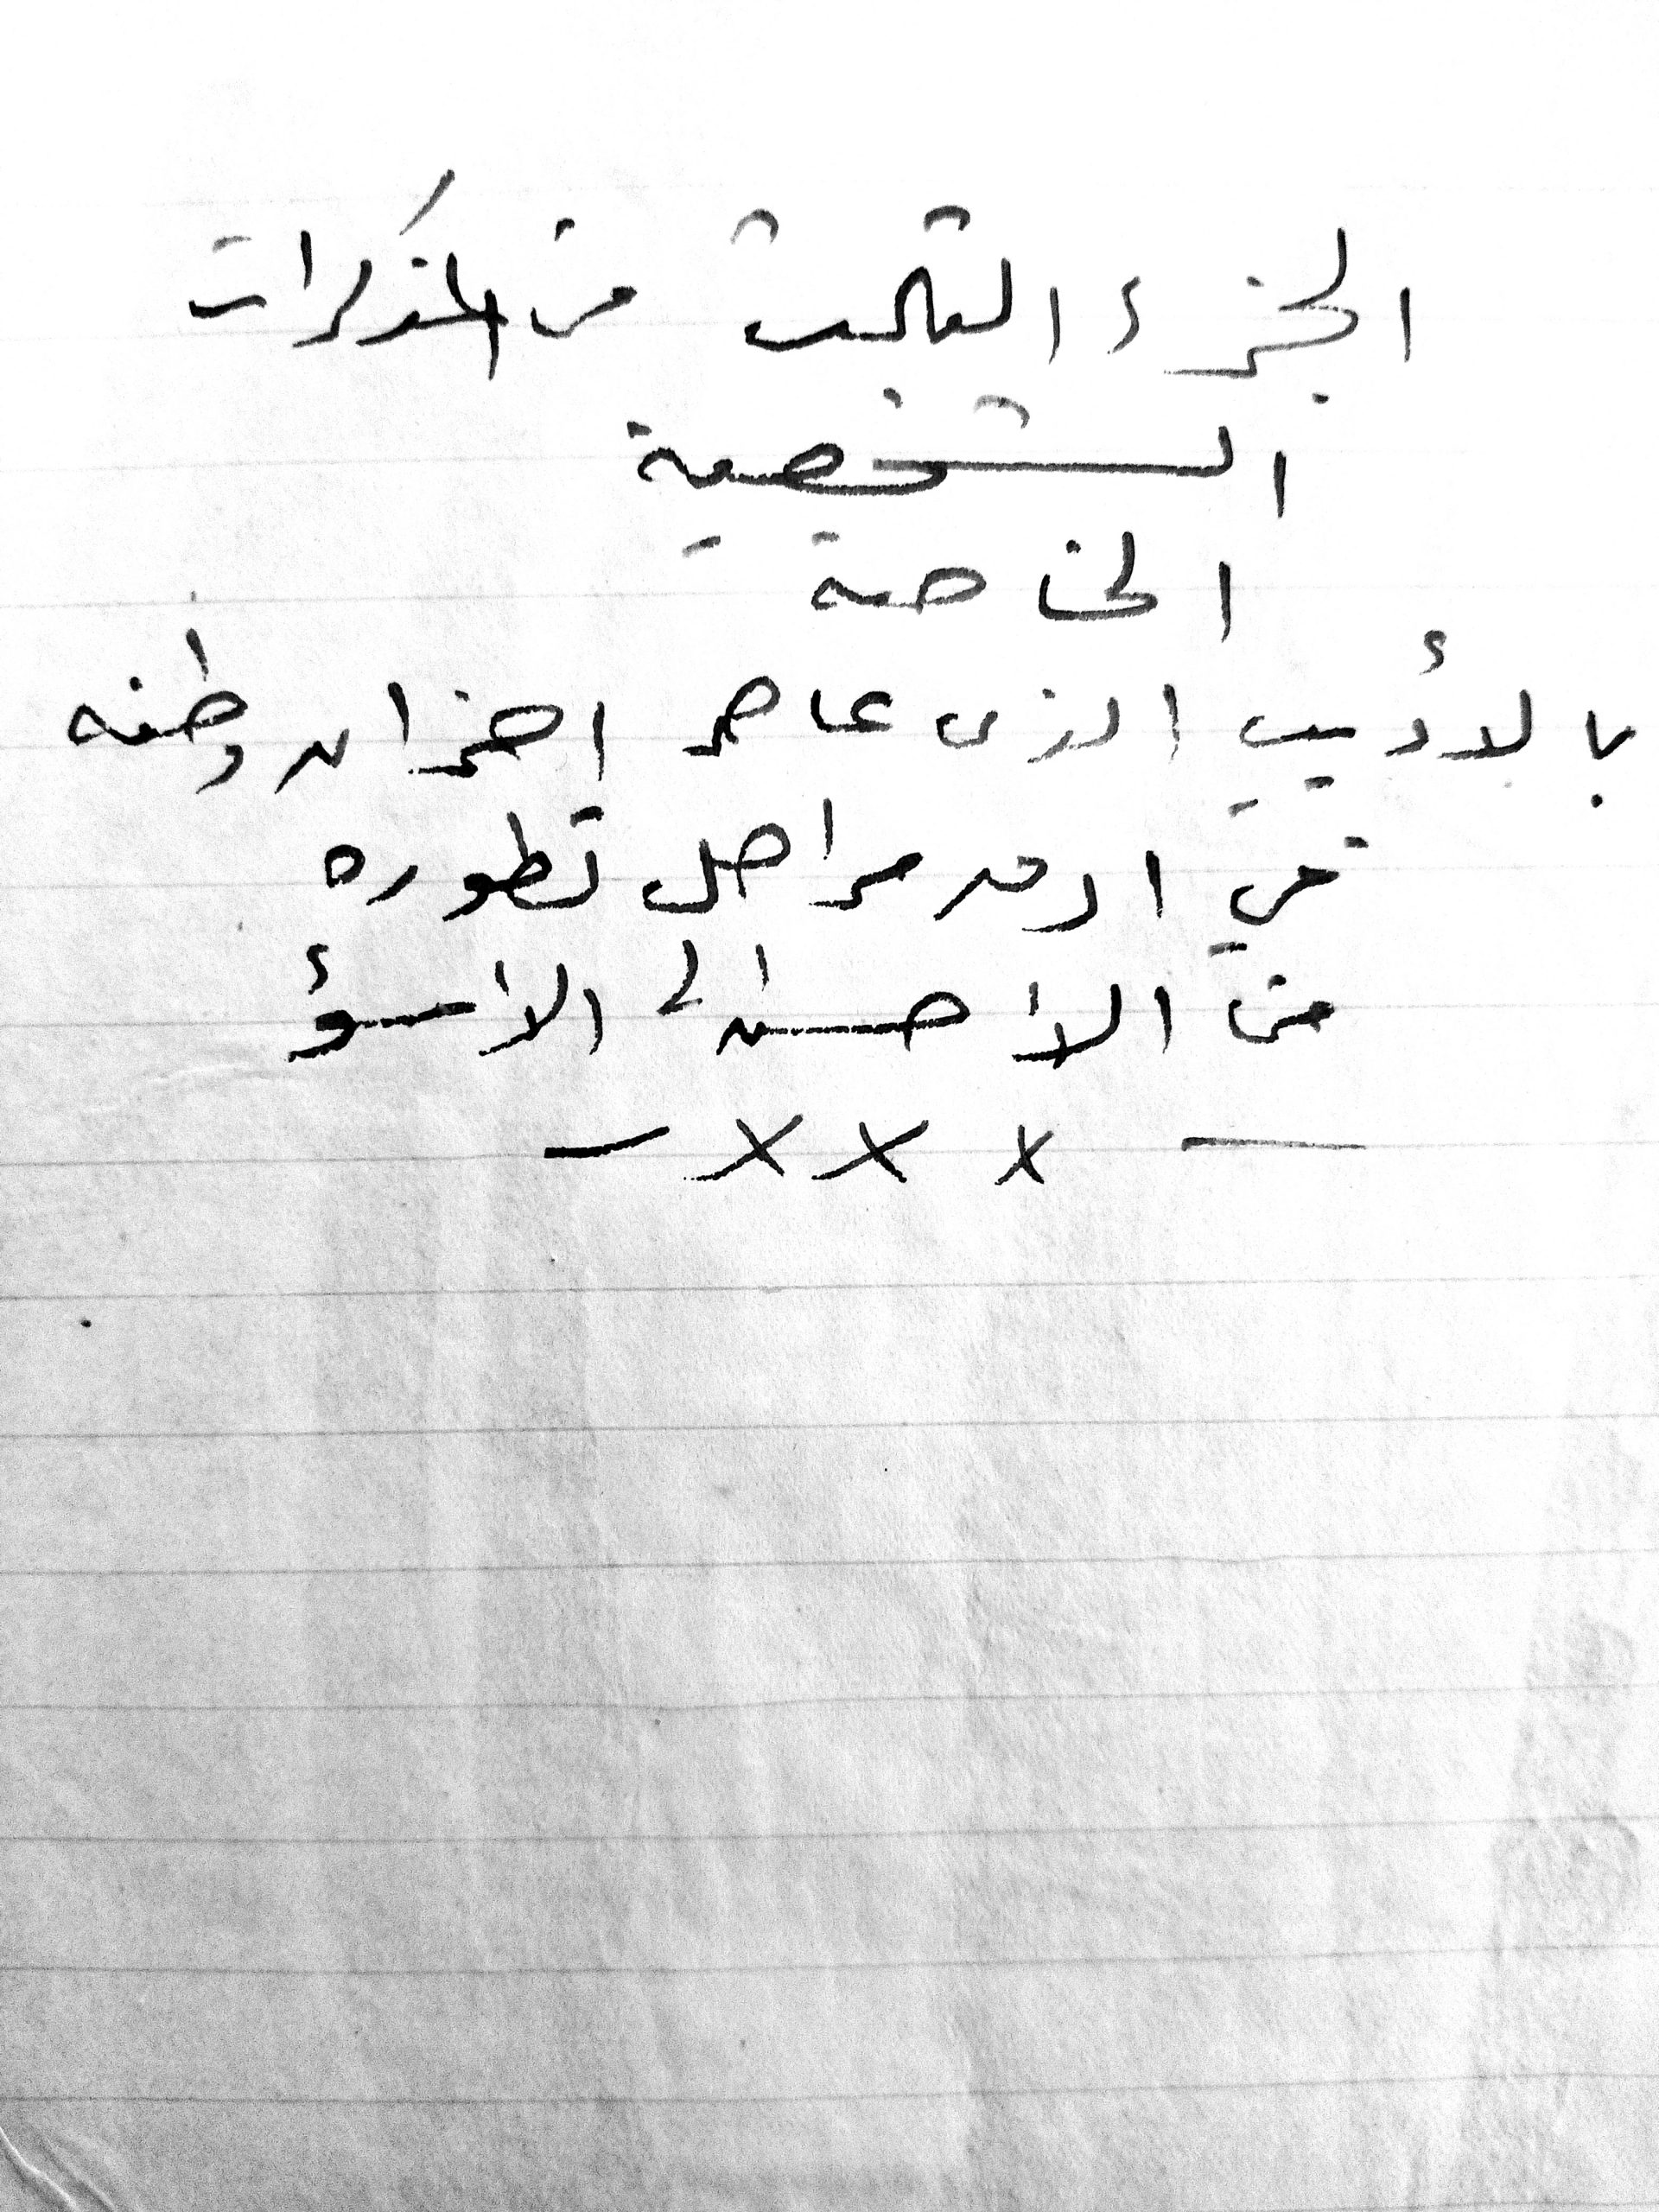 الجزء الثالث من المذكرات
الشخصية
الخاصة
بالأديب الذى عاصر احزان وطنه
في ادق مراحل تطوره
من الاحسن الى الاسؤ
— x x x —